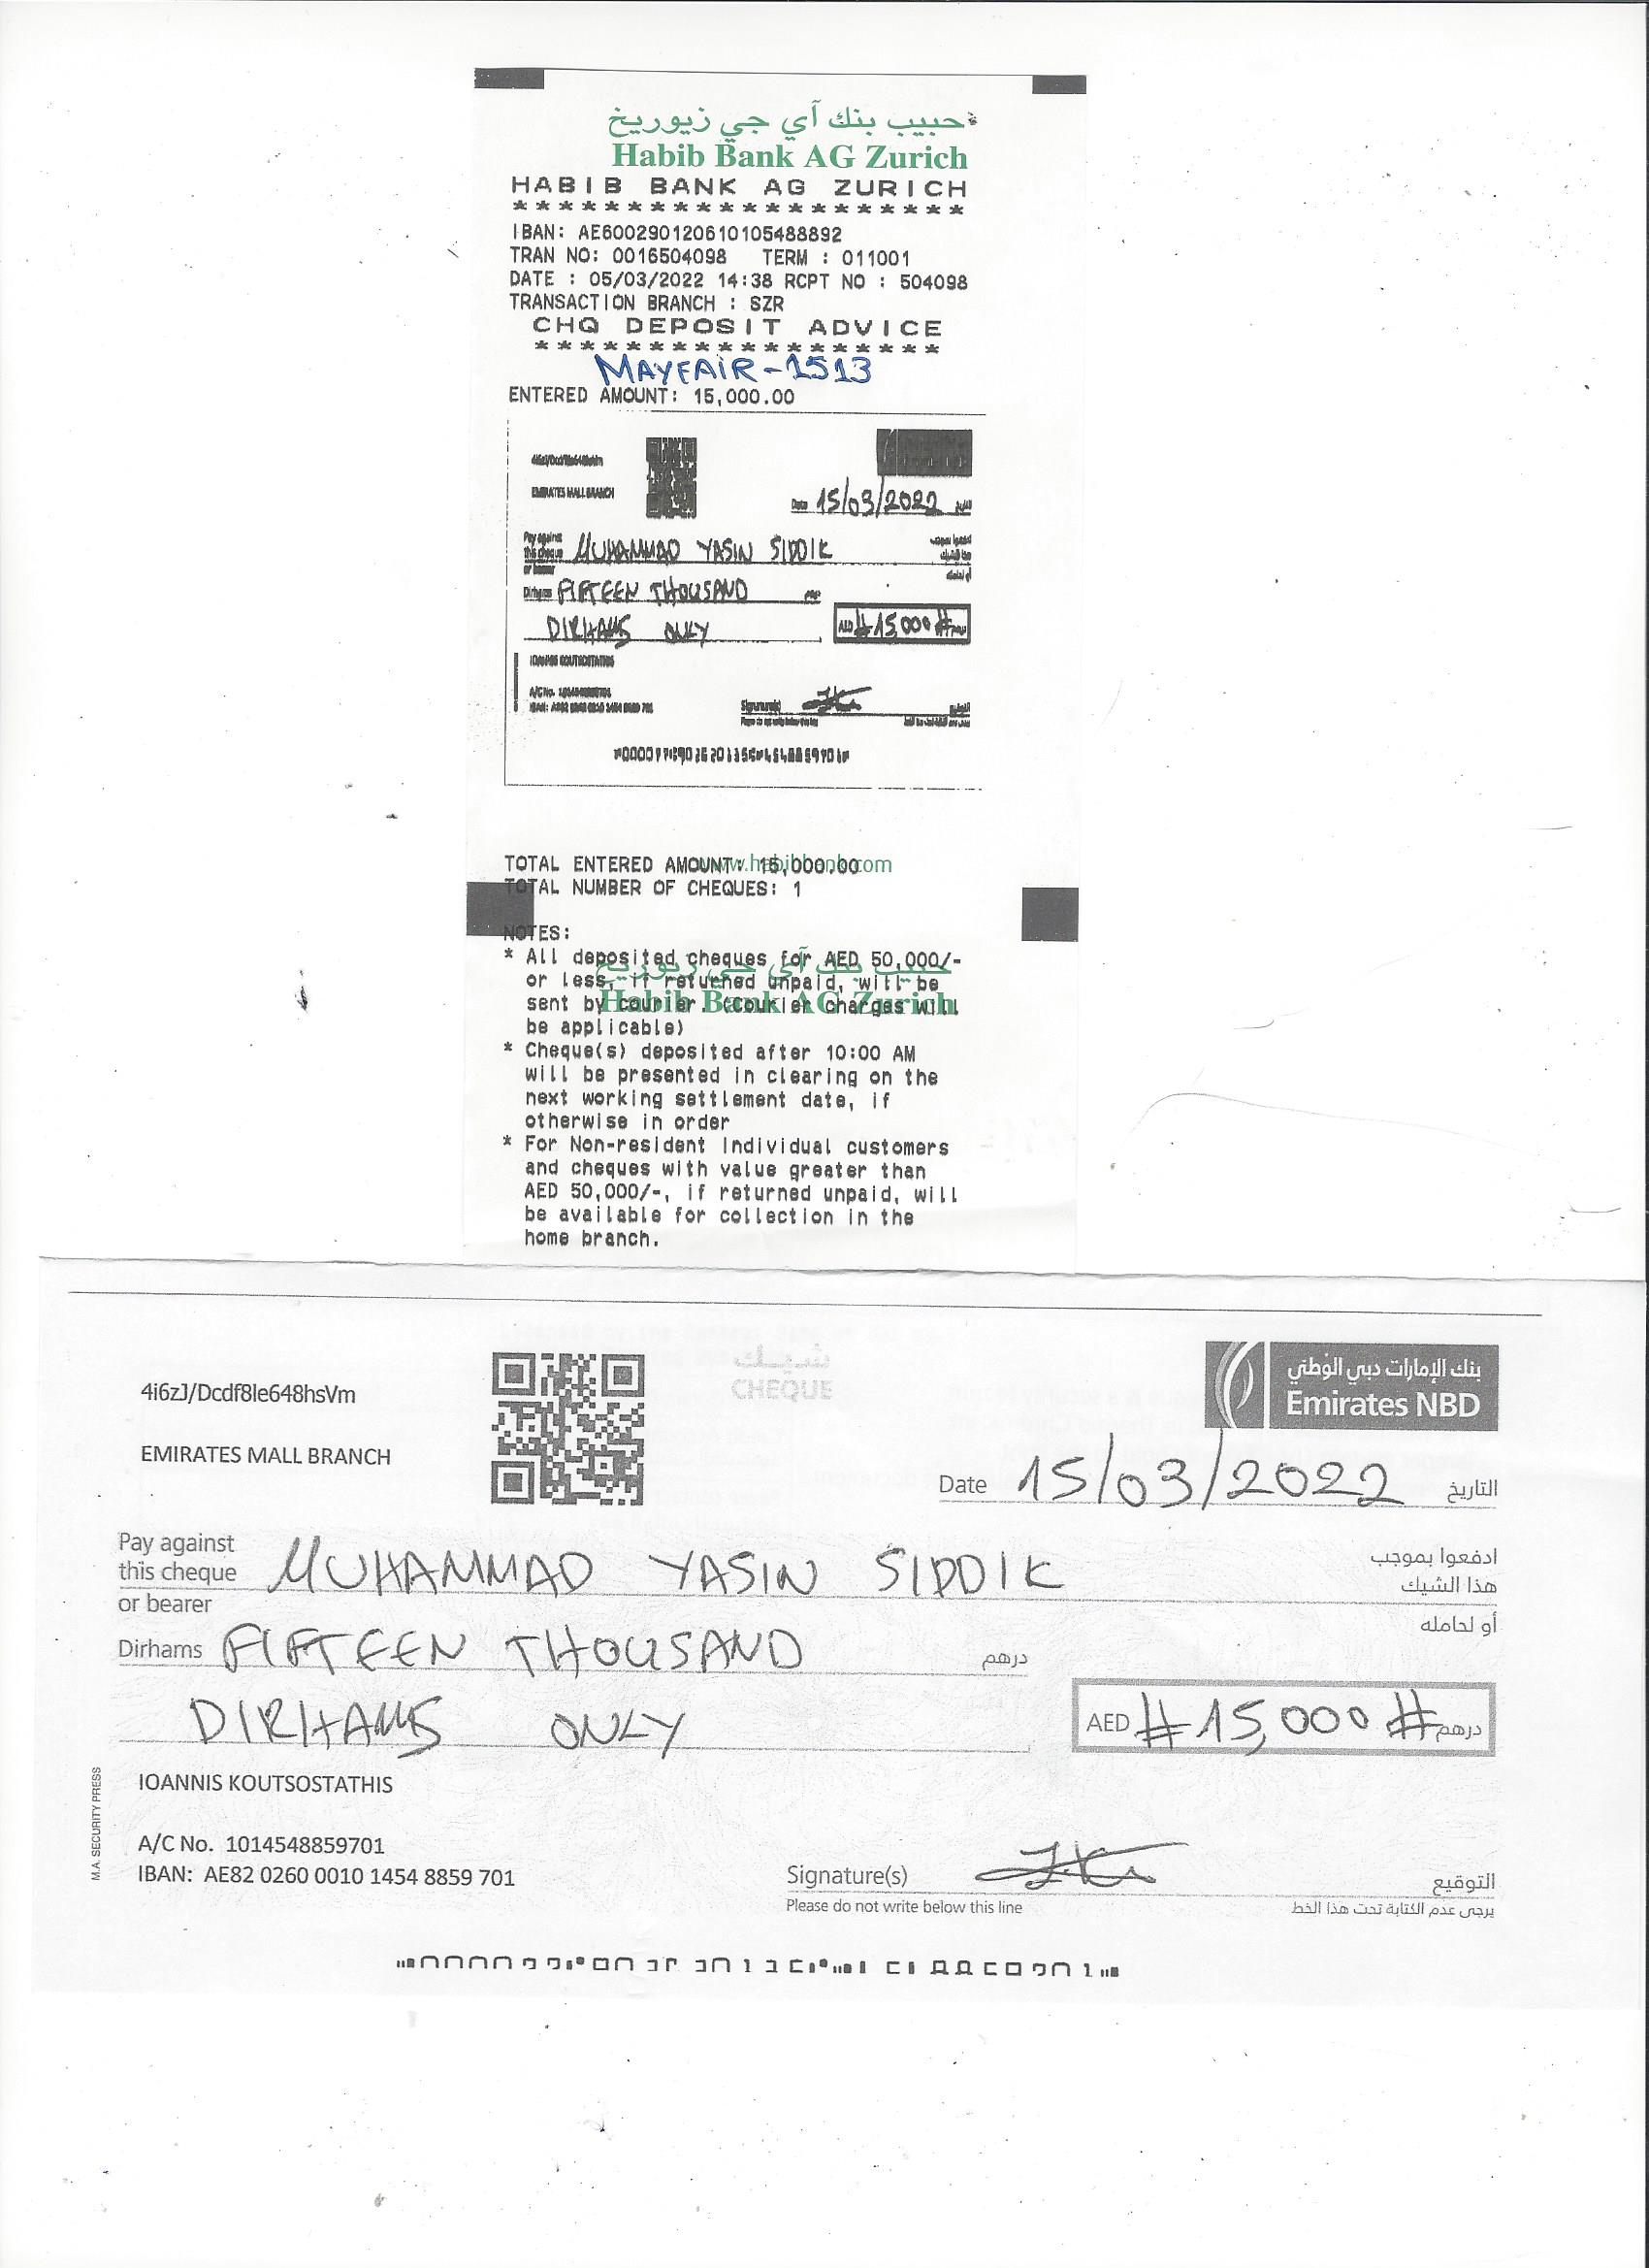 حبيب بنك آي جي زيوريخ
Habib Bank AG Zurich
HABIB BANK AG ZURICH
* * * * * * * * * * * * * * * * * * * *
IBAN: AE600290120610105488892
TRAN NO: 0016504098 TERM : 011001
DATE : 05/03/2022 14:38 RCPT NO : 504098
TRANSACTION BRANCH : SZR
CHQ DEPOSIT ADVICE
* * * * * * * * * * * * * * * * * *
MAYFAIR-1513
ENTERED AMOUNT: 15,000.00
EMIRATES MALL BRANCH
Date 15/03/2022
Pay against
this cheque MUHAMMAD YASIN SIDDIK
or bearer
Dirhams FIFTEEN THOUSAND
DIRHAMS ONLY AED #15,000#
Signature(s)
TOTAL ENTERED AMOUNT: 15,000.00
www.habibbank.com
TOTAL NUMBER OF CHEQUES: 1
NOTES:
* All deposited cheques for AED 50,000/-
حبيب بنك آي جي زيوريخ
or less, if returned unpaid, will be
Habib Bank AG Zurich
sent by courier. (courier charges will
be applicable)
* Cheque(s) deposited after 10:00 AM
will be presented in clearing on the
next working settlement date, if
otherwise in order
* For Non-resident Individual customers
and cheques with value greater than
AED 50,000/-, if returned unpaid, will
be available for collection in the
home branch.
شيك
CHEQUE
بنك الإمارات دبي الوطني
Emirates NBD
4i6zJ/Dcdf8le648hsVm
EMIRATES MALL BRANCH
Date 15/03/2022 التاريخ
Pay against ادفعوا بموجب
this cheque MUHAMMAD YASIN SIDDIK هذا الشيك
or bearer أو لحامله
Dirhams FIFTEEN THOUSAND درهم
DIRHAMS ONLY AED #15,000# درهم
M.A. SECURITY PRESS
IOANNIS KOUTSOSTATHIS
A/C No. 1014548859701
IBAN: AE82 0260 0010 1454 8859 701
Signature(s) التوقيع
Please do not write below this line يرجى عدم الكتابة تحت هذا الخط